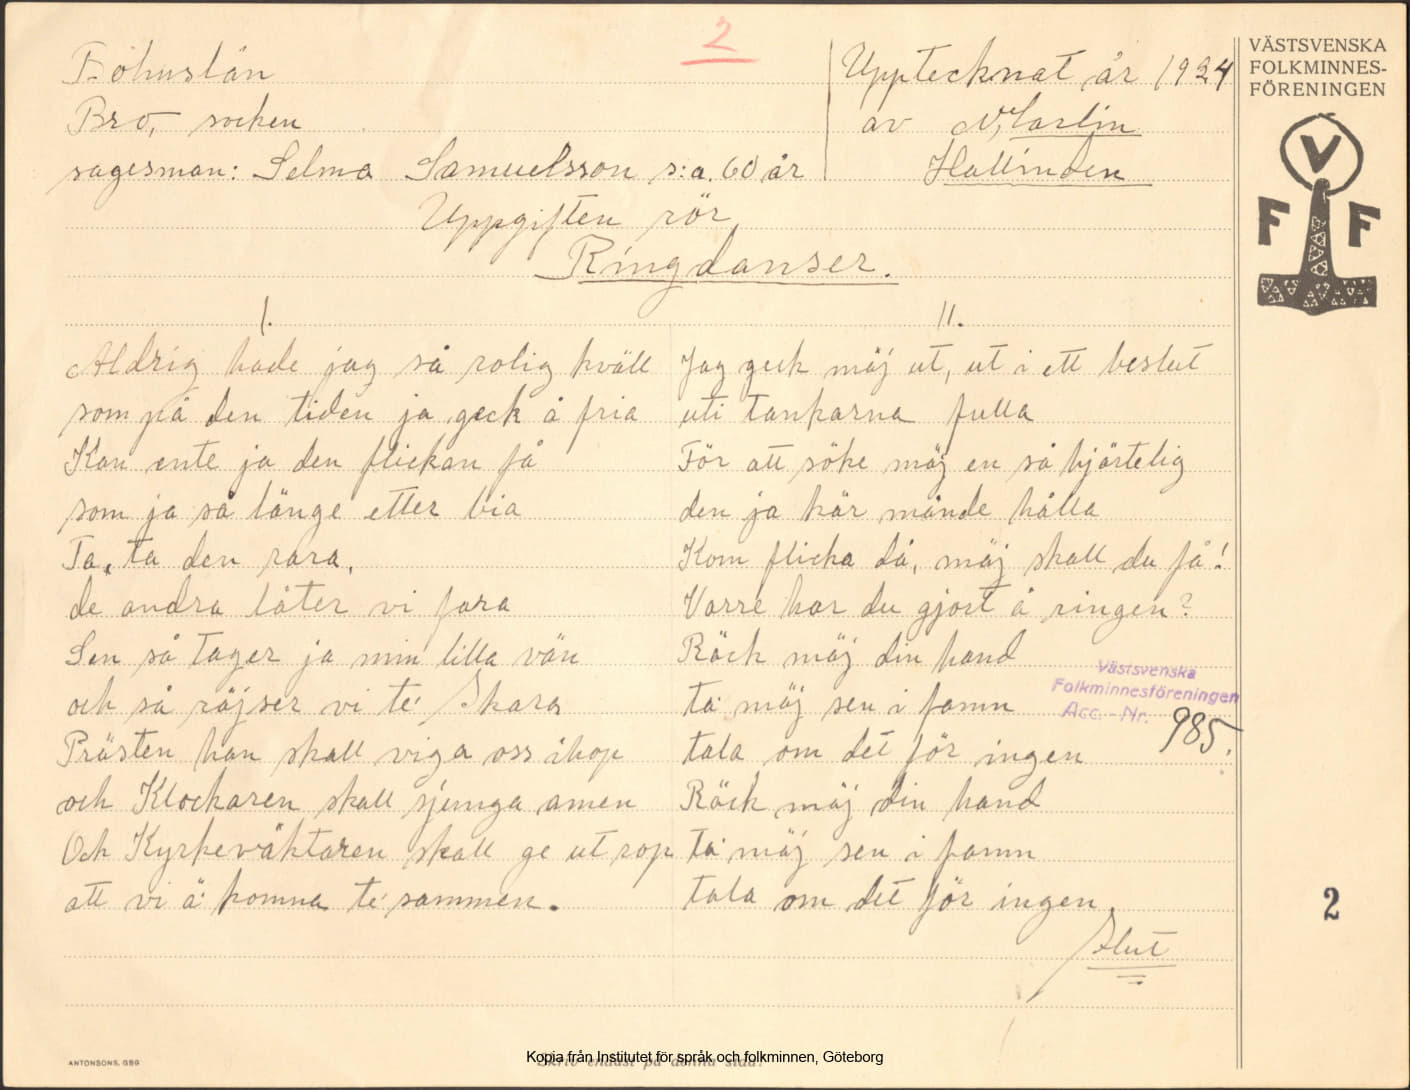 2
Bohuslän
Bro, socken
sagesman: Selma Samuelsson s:a. 60 år
Upptecknat år 1924
av N, Carlin
Hallinden
VÄSTSVENSKA
FOLKMINNES-
FÖRENINGEN
V
F F
Uppgiften rör
Ringdanser.
I.
Aldrig hade jag så rolig kväll
som på den tiden ja geck å fria
Kan ente ja den flickan få
som ja så länge etter bia
Ta, ta den rara,
de andra låter vi fara
Sen så tager ja min lilla vän
och så räjser vi te' Skara
Prästen han skall viga oss ihop
och Klockaren skall sjunga amen
Och Kyrkeväktaren skall ge ut rop
att vi ä' komna te' sammen.
II.
Jag geck mäj ut, ut i ett beslut
uti tankarna fulla
För att söke mäj en så hjärtelig
den ja kär månde hålla
Kom flicka då, mäj skall du få!
Varre har du gjort å ringen?
Räck mäj din hand
ta' mäj sen i famn
tala om det för ingen
Räck mäj din hand
ta' mäj sen i famn
tala om det för ingen.
Slut
Västsvenska
Folkminnesföreningen
Acc.-Nr. 985.
2
ANTONSONS, GBG
Skriv endast på denna sida!
Kopia från Institutet för språk och folkminnen, Göteborg